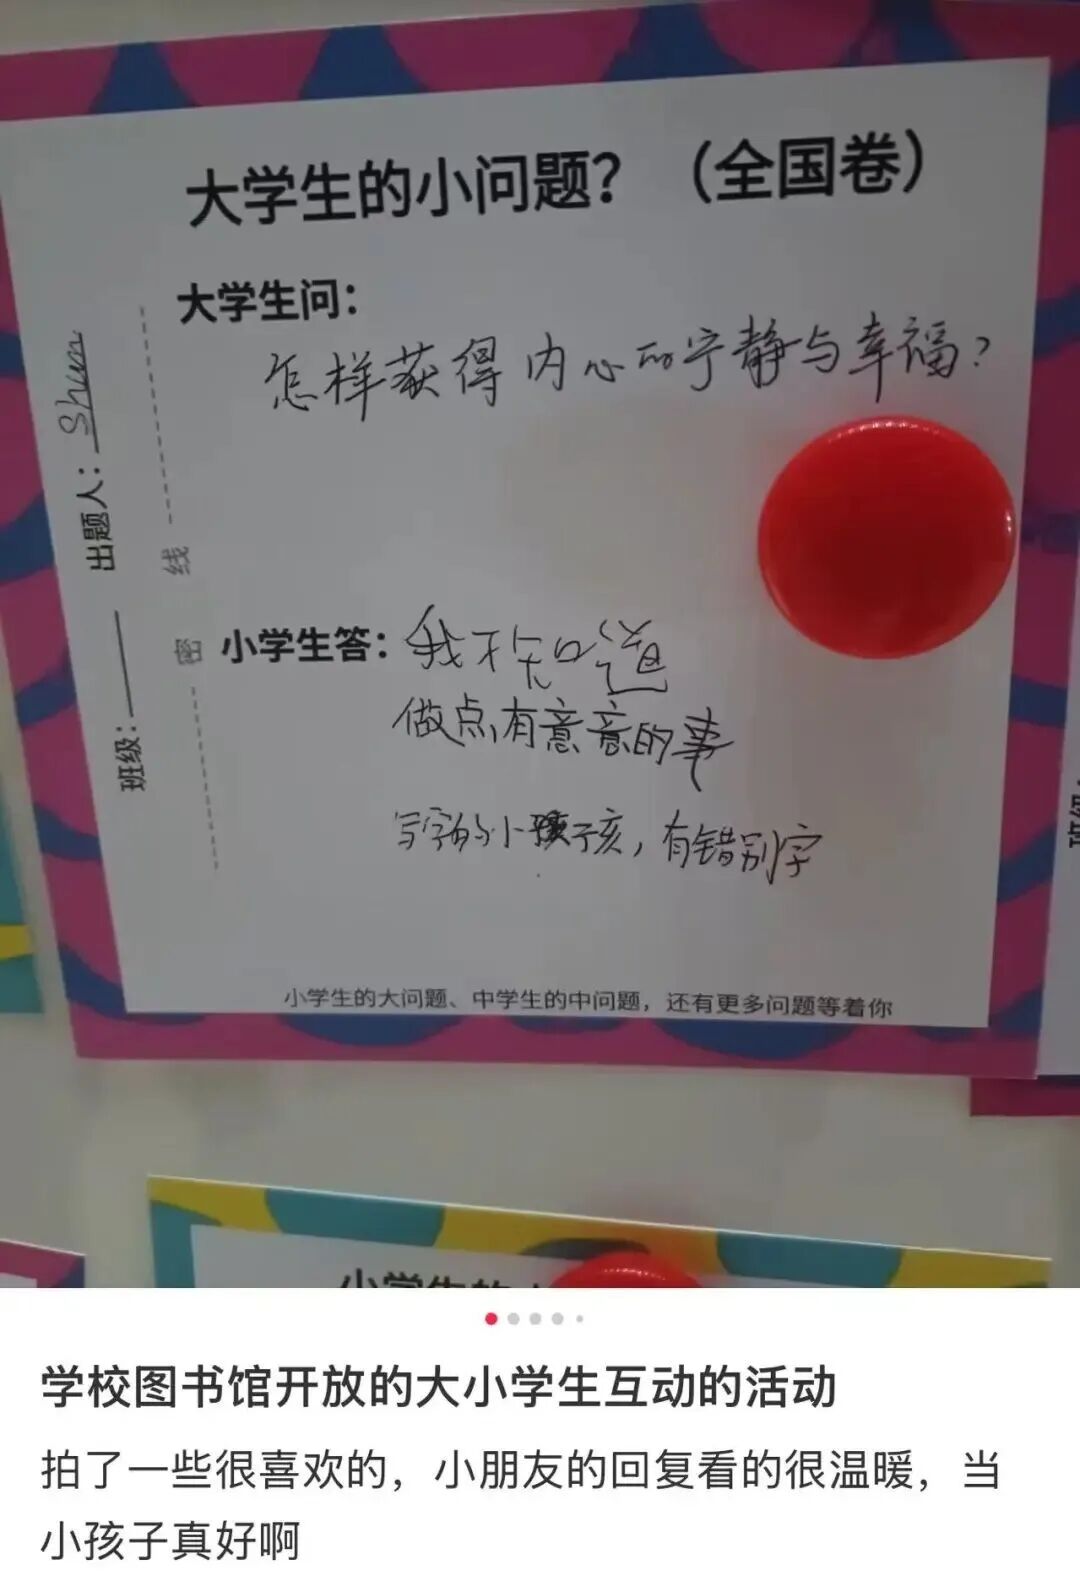 大学生的小问题？（全国卷）
大学生问：
怎样获得内心的宁静与幸福？
出题人：Shun
班级：
密
线
小学生答：我不知道
做点有意意的事
写字的小孩，有错别字
小学生的大问题、中学生的中问题，还有更多问题等着你
学校图书馆开放的大小学生互动的活动
拍了一些很喜欢的，小朋友的回复看的很温暖，当
小孩子真好啊